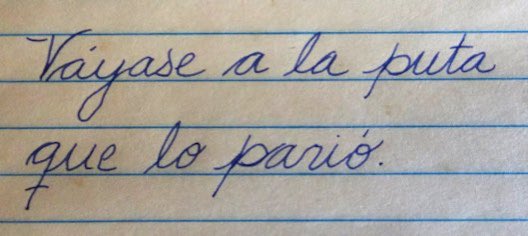 Váyase a la puta
que lo parió.